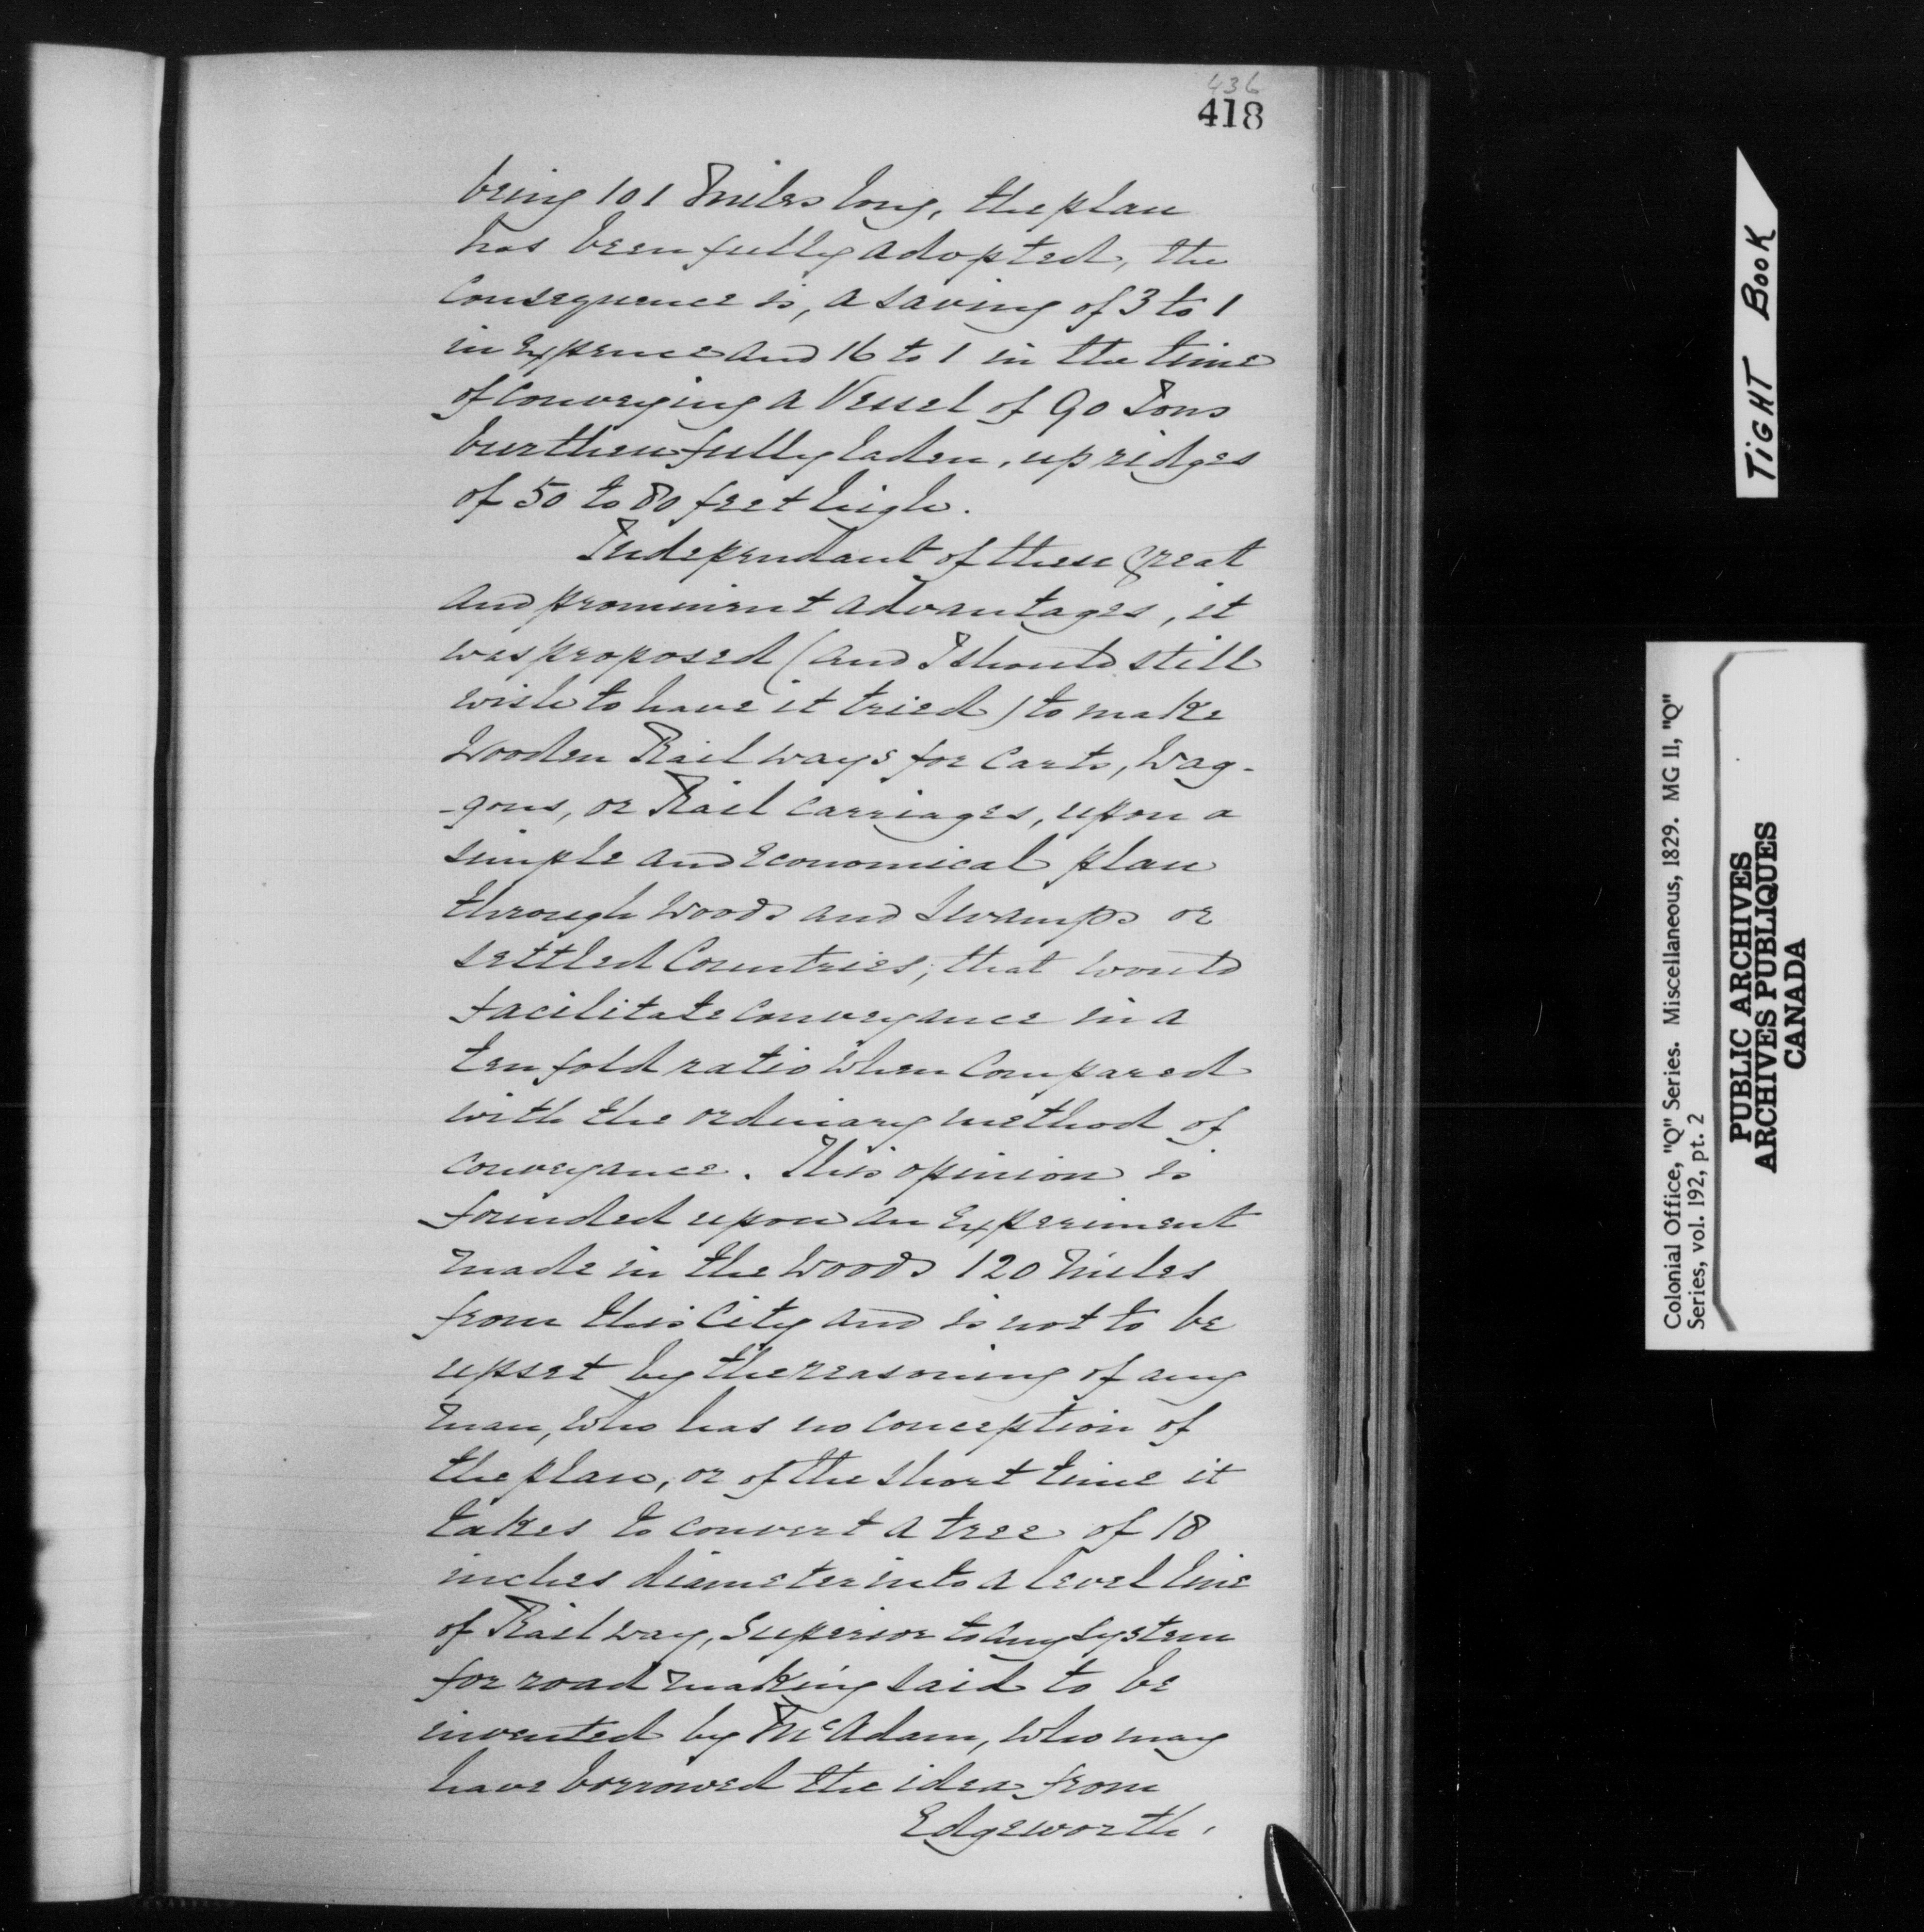 436
418
being 101 Miles long, the plan
has been fully adopted, the
Consequence is, a saving of 3 to 1
in Expence and 16 to 1 in the time
of Conveying a Vessel of 90 Tons
burthen fully laden, up ridges
of 50 to 80 feet high.
Independant of these great
and prominent advantages, it
was proposed (and I should still
wish to have it tried) to make
Wooden Rail ways for Carts, Wag-
-gons, or Rail Carriages, upon a
simple and Economical plan
through Woods and Swamps or
settled Countries, that would
facilitate Conveyance in a
ten fold ratio when Compared
with the ordinary method of
Conveyance. This opinion is
founded upon an Experiment
made in the Woods 120 Miles
from this City and is not to be
upset by the reasoning of any
Man, who has no Conception of
the plan, or of the short time it
takes to Convert a tree of 18
inches diameter into a level line
of Rail way, Superior to any System
for road Making said to be
invented by McAdam, who may
have borrowed the idea from
Edgeworth,
TIGHT BOOK
Colonial Office, "Q" Series. Miscellaneous, 1829. MG 11, "Q"
Series, vol. 192, pt. 2
PUBLIC ARCHIVES
ARCHIVES PUBLIQUES
CANADA